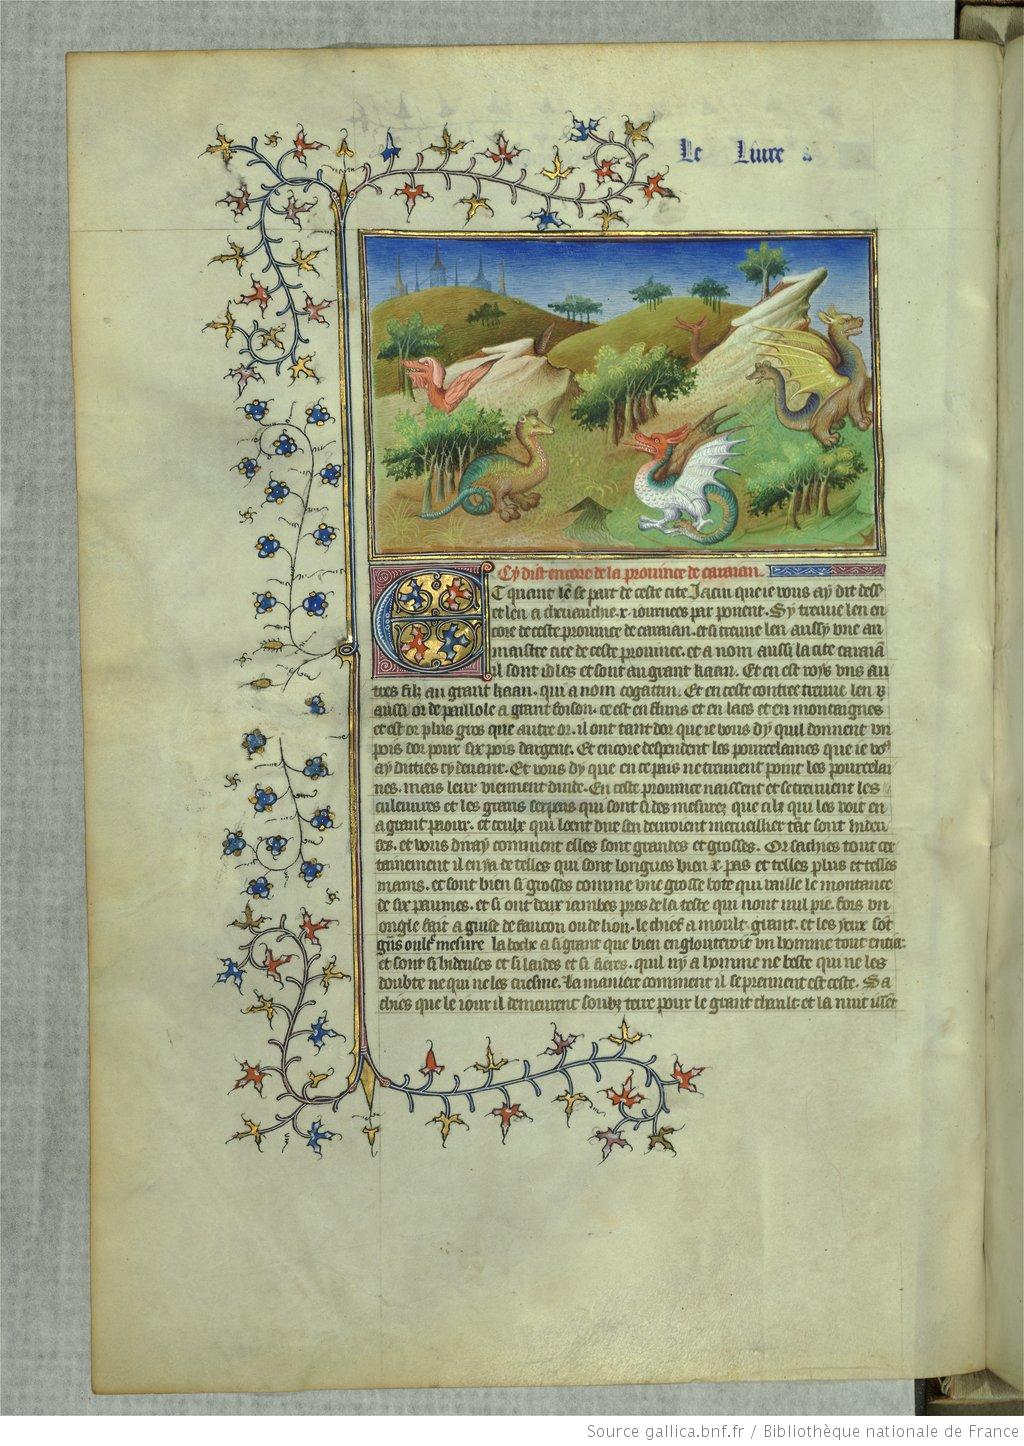 Le Liure
Cy dist encore de la prouince de caraian.
Et quant len se part de ceste cite Jacin que ie vous ay dit dess
et len a cheuauchie .x. iournees par ponent. Sy treuue len en
core de ceste prouince de caraian. et si treuue len aussy vne au
maistre cite de ceste prouince. et a nom aussi la cite caraiã
il sont idles et sont au grant kaan. Et en est roys vns au
tres filz au grant kaan. qui a nom cogattin. Et en ceste contree treuue len
aussi or de paillole a grant foison. ce est en fluns et en lacs et en montaignes
et est or plus gros que autre or. il ont tant dor que ie vous dy quil donnent vn
pois dor pour six pois dargent. Et encore despendent les pourcelaines que ie vo9
ay dittes cy deuant. Et vous dy que en ce pais ne treuuent point les pourcelai
nes. mais leur viennent dinde. En ceste prouince naissent et se treuuent les
culeuures et les grans serpens qui sont si des mesurez que cilz qui les voit en
a grant paour. et ceulx qui loent dire sen deuroient merueillier tãt sont hideu
ses. et vous diray comment elles sont grandes et grosses. Or sachies tout cer
tainement il en ya de telles qui sont longues bien .x. pas et telles plus et telles
mains. et sont bien si grosses comme vne grosse bote qui vaille le montance
de six paumes. et si ont deux iambes pres de la teste qui nont nul pie. fors vn
ongle fait a guise de faucon ou de lion. le chief a moult grant. et les yeux sõt
mesure la boche a si grant que bien engloutiroit vn homme tout entier
et sont si hideuses et si laides et si fieres. quil ny a homme ne beste qui ne les
doubte ne qui ne les criesme. La maniere comment il se prennent est ceste. Sa
chies que le iour il demeurent soubz terre pour le grant chault et la nuit
Source gallica.bnf.fr / Bibliothèque nationale de France